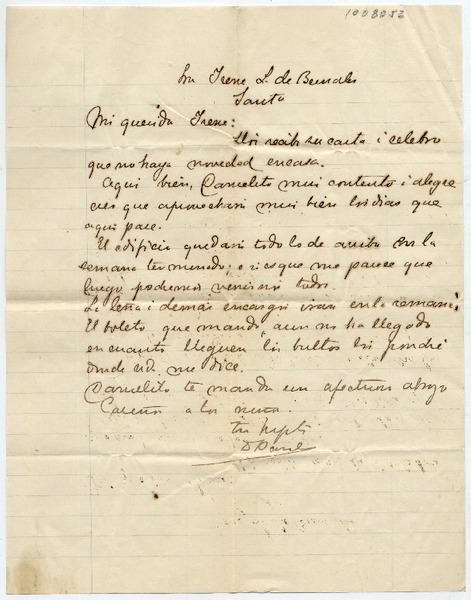 1008253
Sra Irene L de Bernales
Santo
Mi querida Irene:
Hoi recibí su carta i celebro
que no haya novedad en casa.
Aqui bien, Carmelito mui contento i alegre
creo que aprovechara mui bien los dias que
aqui pase.
El edificio quedará todo lo de arriba en la
semana terminado; asi es que me parece que
luego podremos venirnos todos.
La leña i demás encargos iran en la semana;
El boleto que mandó, aun no ha llegado
en cuanto lleguen los bultos los pondré
donde Ud. me dice.
Carmelito te manda un afectuoso abrazo
Cariños a los niños.
tu